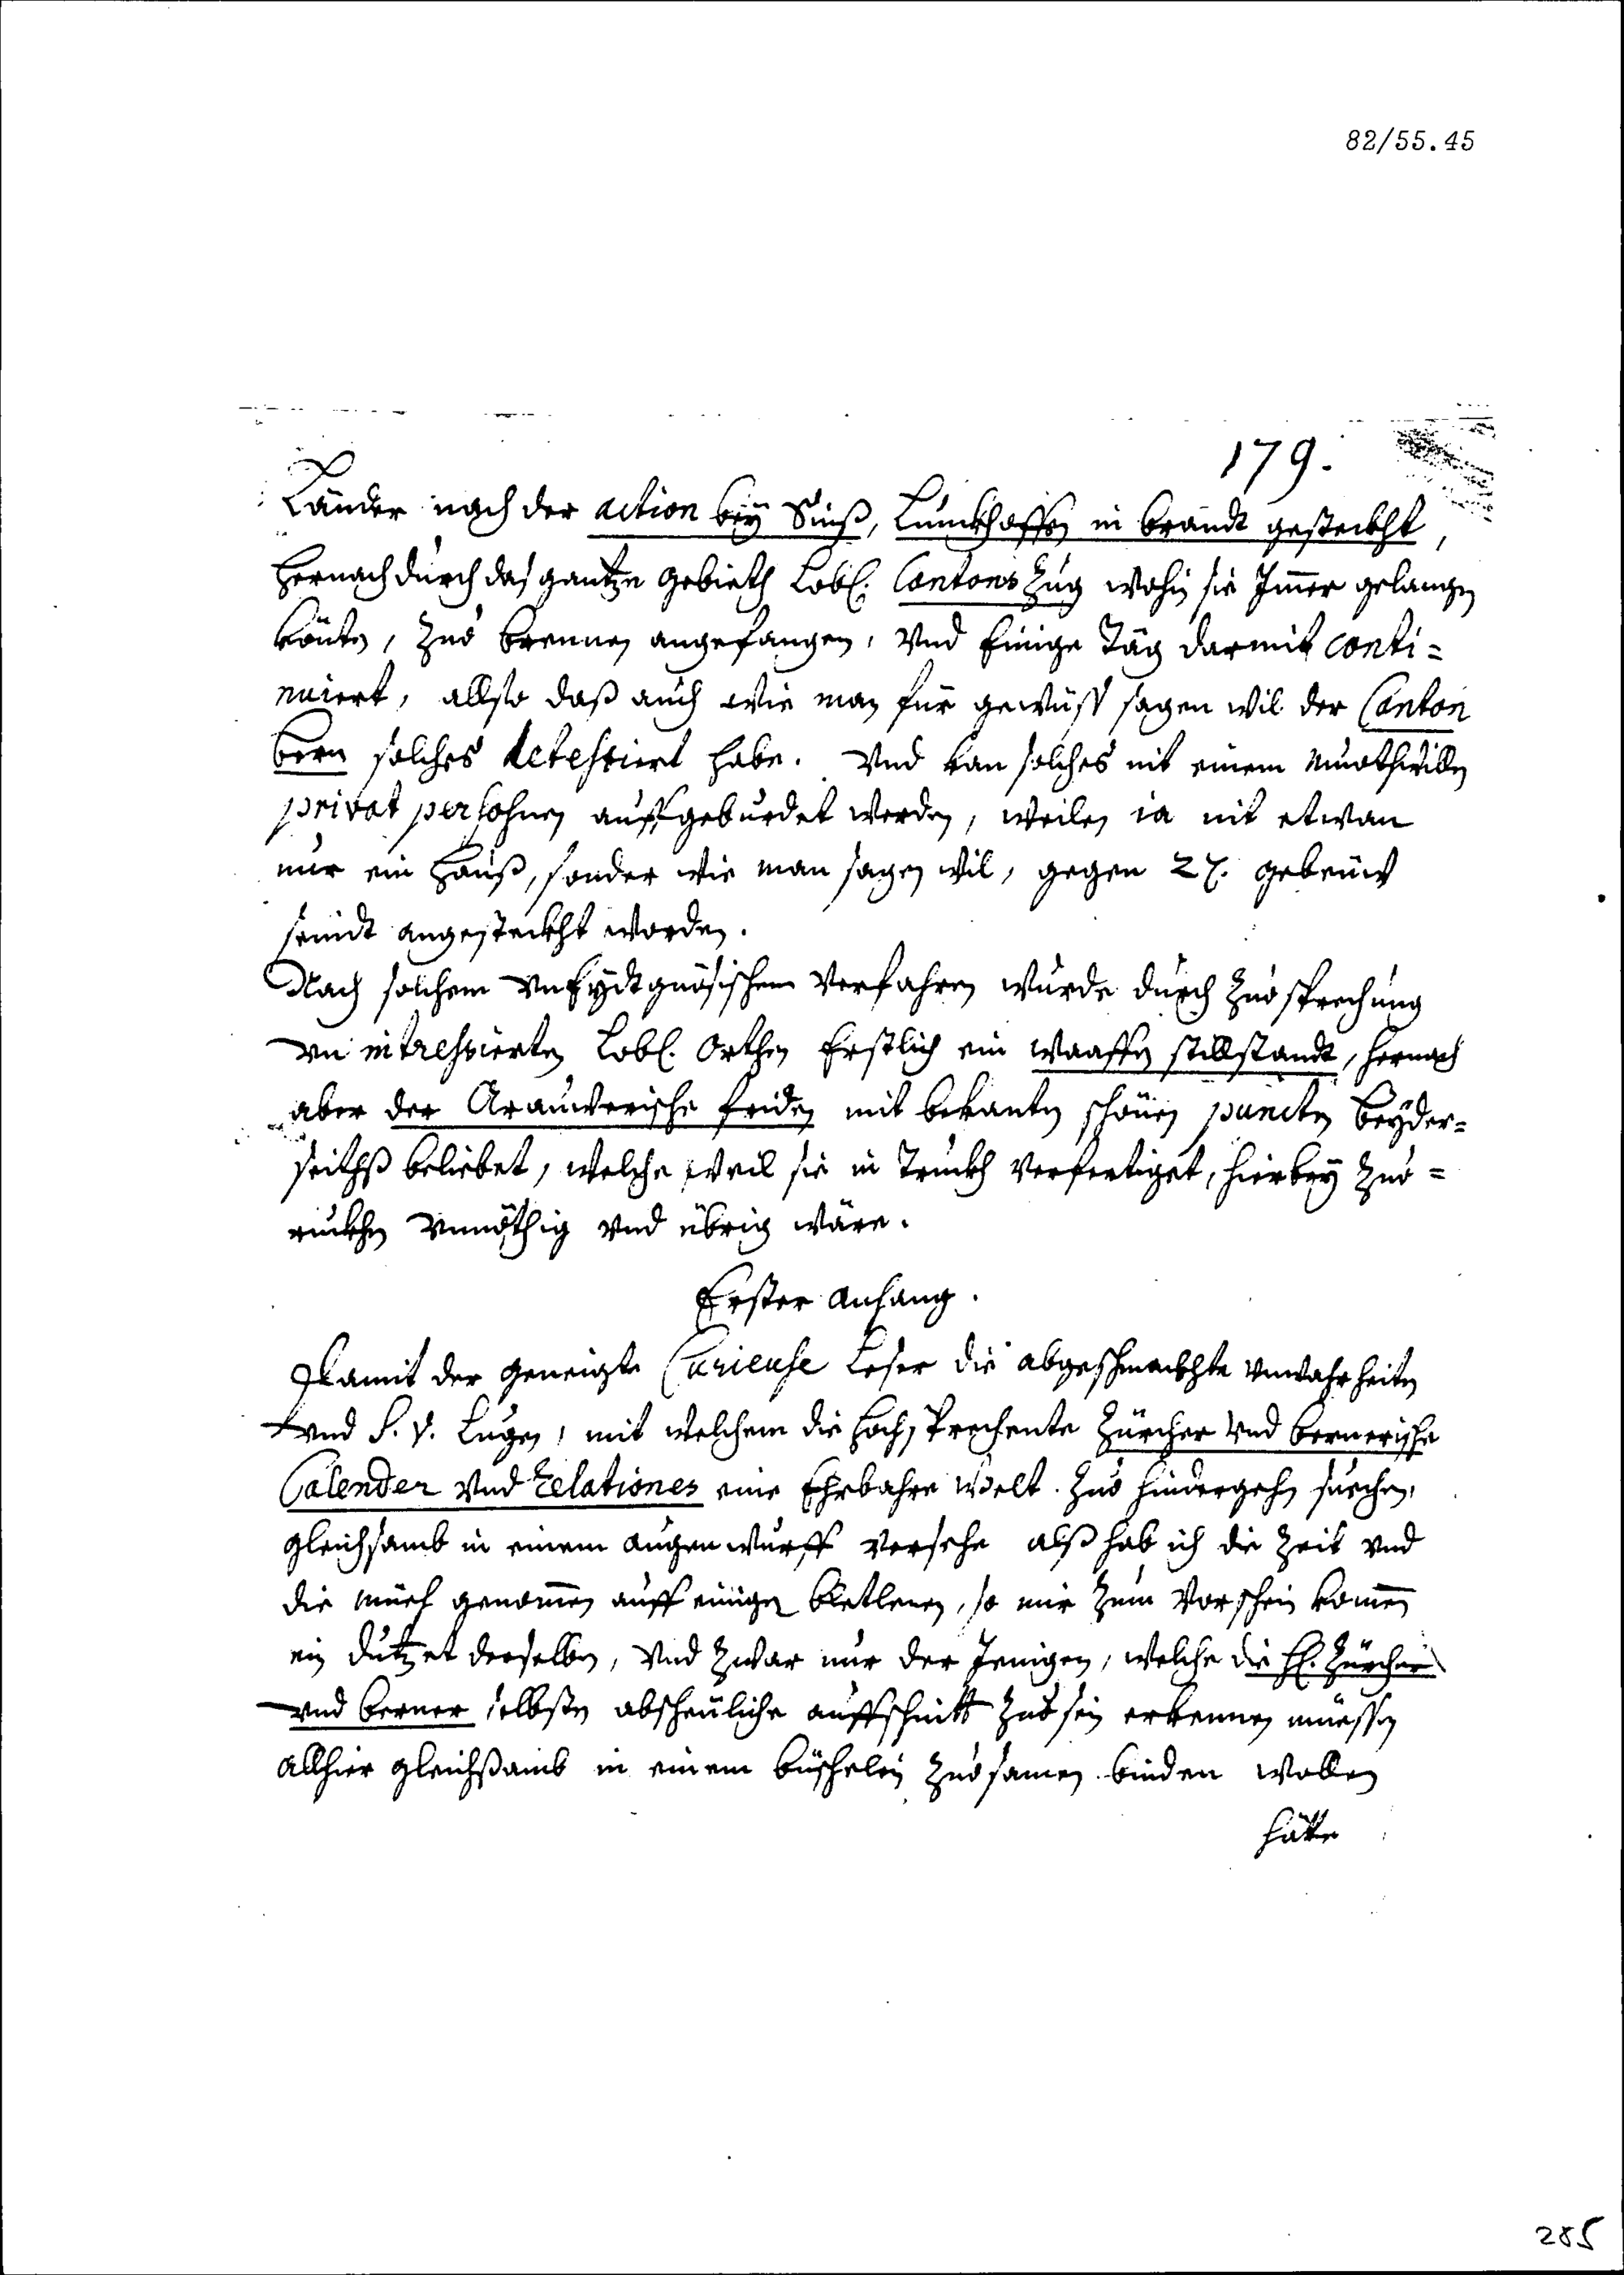 82/55.45
179.
Länder nach der action beÿ Sinß, Lunckhoffen in brandt gesteckht,
hernach durch das gantze gebieth Lobl. Cantons Zug wohin sie Jm̄er gelangen
könten, zuo brennen angefangen, vnd Einige Täg darmit conti=
nuiert, allso daß auch wie man für gewüss sagen wil der Canton
bern solches detestiert habe. Vnd kan solches nit einem muothwillen
privat persohnen auffgeburdet werden, weilen ia nit etwan
nur ein Hauß, sonder wie man sagen wil, gegen 27. gebeüw
seindt angesteckht worden.
Nach solchem vn Eydtgnösischem Verfahren wurde durch zuosprechung
vn intressierten Lobl. Orthen Erstlich ein waaffen stillstandt, hernach
aber der Arauwerische friden mit bekanten schönen puncten beÿder=
seithß beliebet, welche weil sie in Truckh verfertiget, hierbeÿ zuo=
ruckhen vnnöthig vnd übrig wäre.
Erster Anhang.
Damit der geneigte Curieuse Leser die abgeschmackhte vnwahrheiten
vnd S. V. Lugen, mit welchem die hochsprechente Zürcher vnd bernerische
Calender vnd relationes eine Ehrbahre Welt zuo hindergehn suechen,
gleichsamb in einem augenwurff versehe alß hab ich die Zeit vnd
die müeh genom̄en auff einigen bletlenen, so mir zum Vorschein kom̄en
ein dutzet derselben, vnd zwar nur der Jenigen, welche die H. Zürcher
vnd berner selbsten abscheüliche auffschnitt zuo sein erkennen müessen
allhier gleichßamb in einem büschelein zuosamen binden wollen
hätte
285